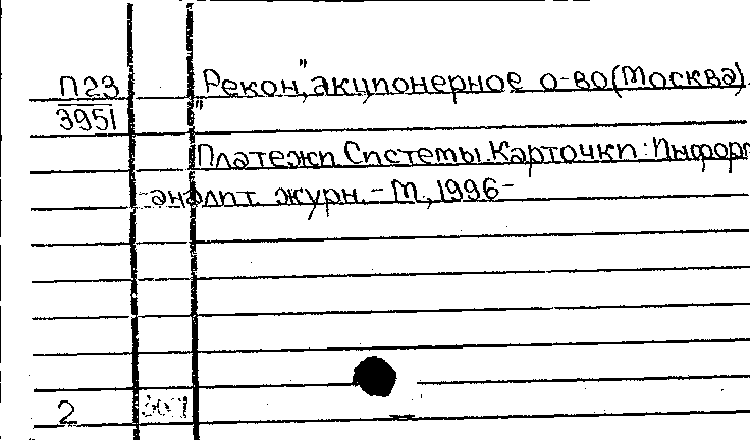 П23 "Рекон", акционерное о-во (Москва).
3951
Платежи. Системы. Карточки: Информ.
-аналит. журн. - М., 1996-
2